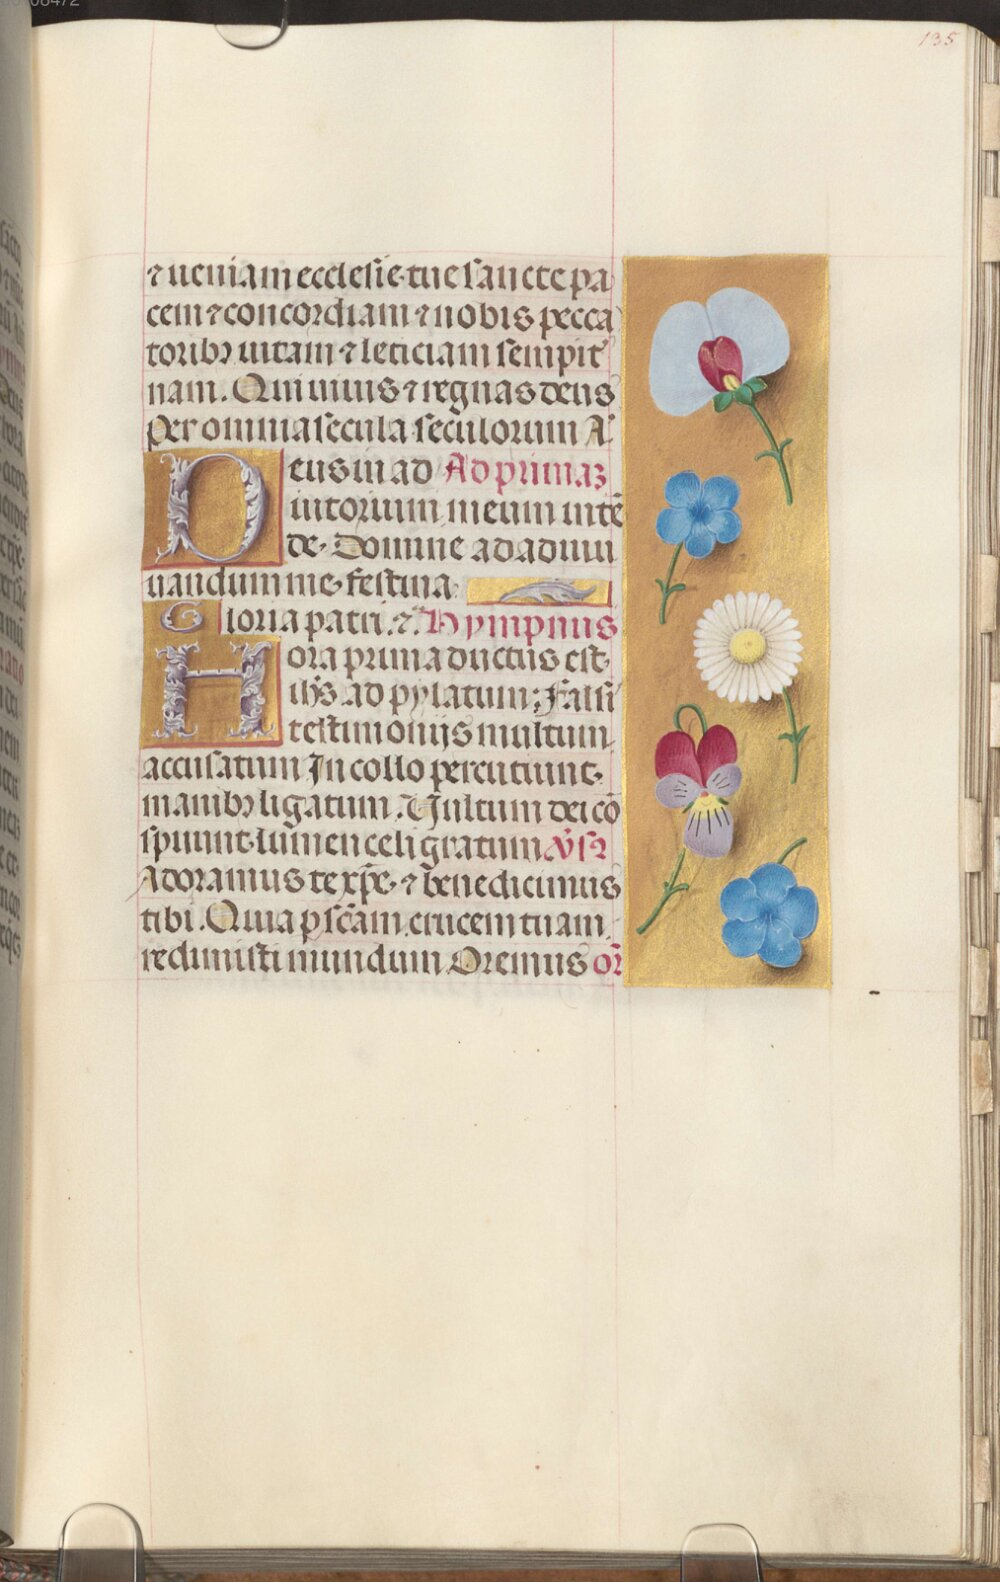 135
⁊ ueniam ecclesie tue sancte pa
cem ⁊ concordiam ⁊ nobis pecca
toribꝫ uitam ⁊ leticiam sempit̛
nam. Qui uiuis ⁊ regnas deus
Per omnia secula seculorum A̛
Deus in ad Ad primaꝫ
iutorium meum intē
de. Domine ad adiuu
uandum me festina.
Gloria patri. ⁊̄ Hympnus
Hora prima ductus est.
ih̄s ad pylatum; Falsi
testimonijs multum
accusatum In collo percutiunt.
manibꝫ ligatum. Uultum dei cō
spuunt lumen celi gratum v̄sꝰ
Adoramus te xp̄e. ⁊ benedicimus
tibi. Quia p scāam crucem tuam
redimisti mundum Oremus or̄